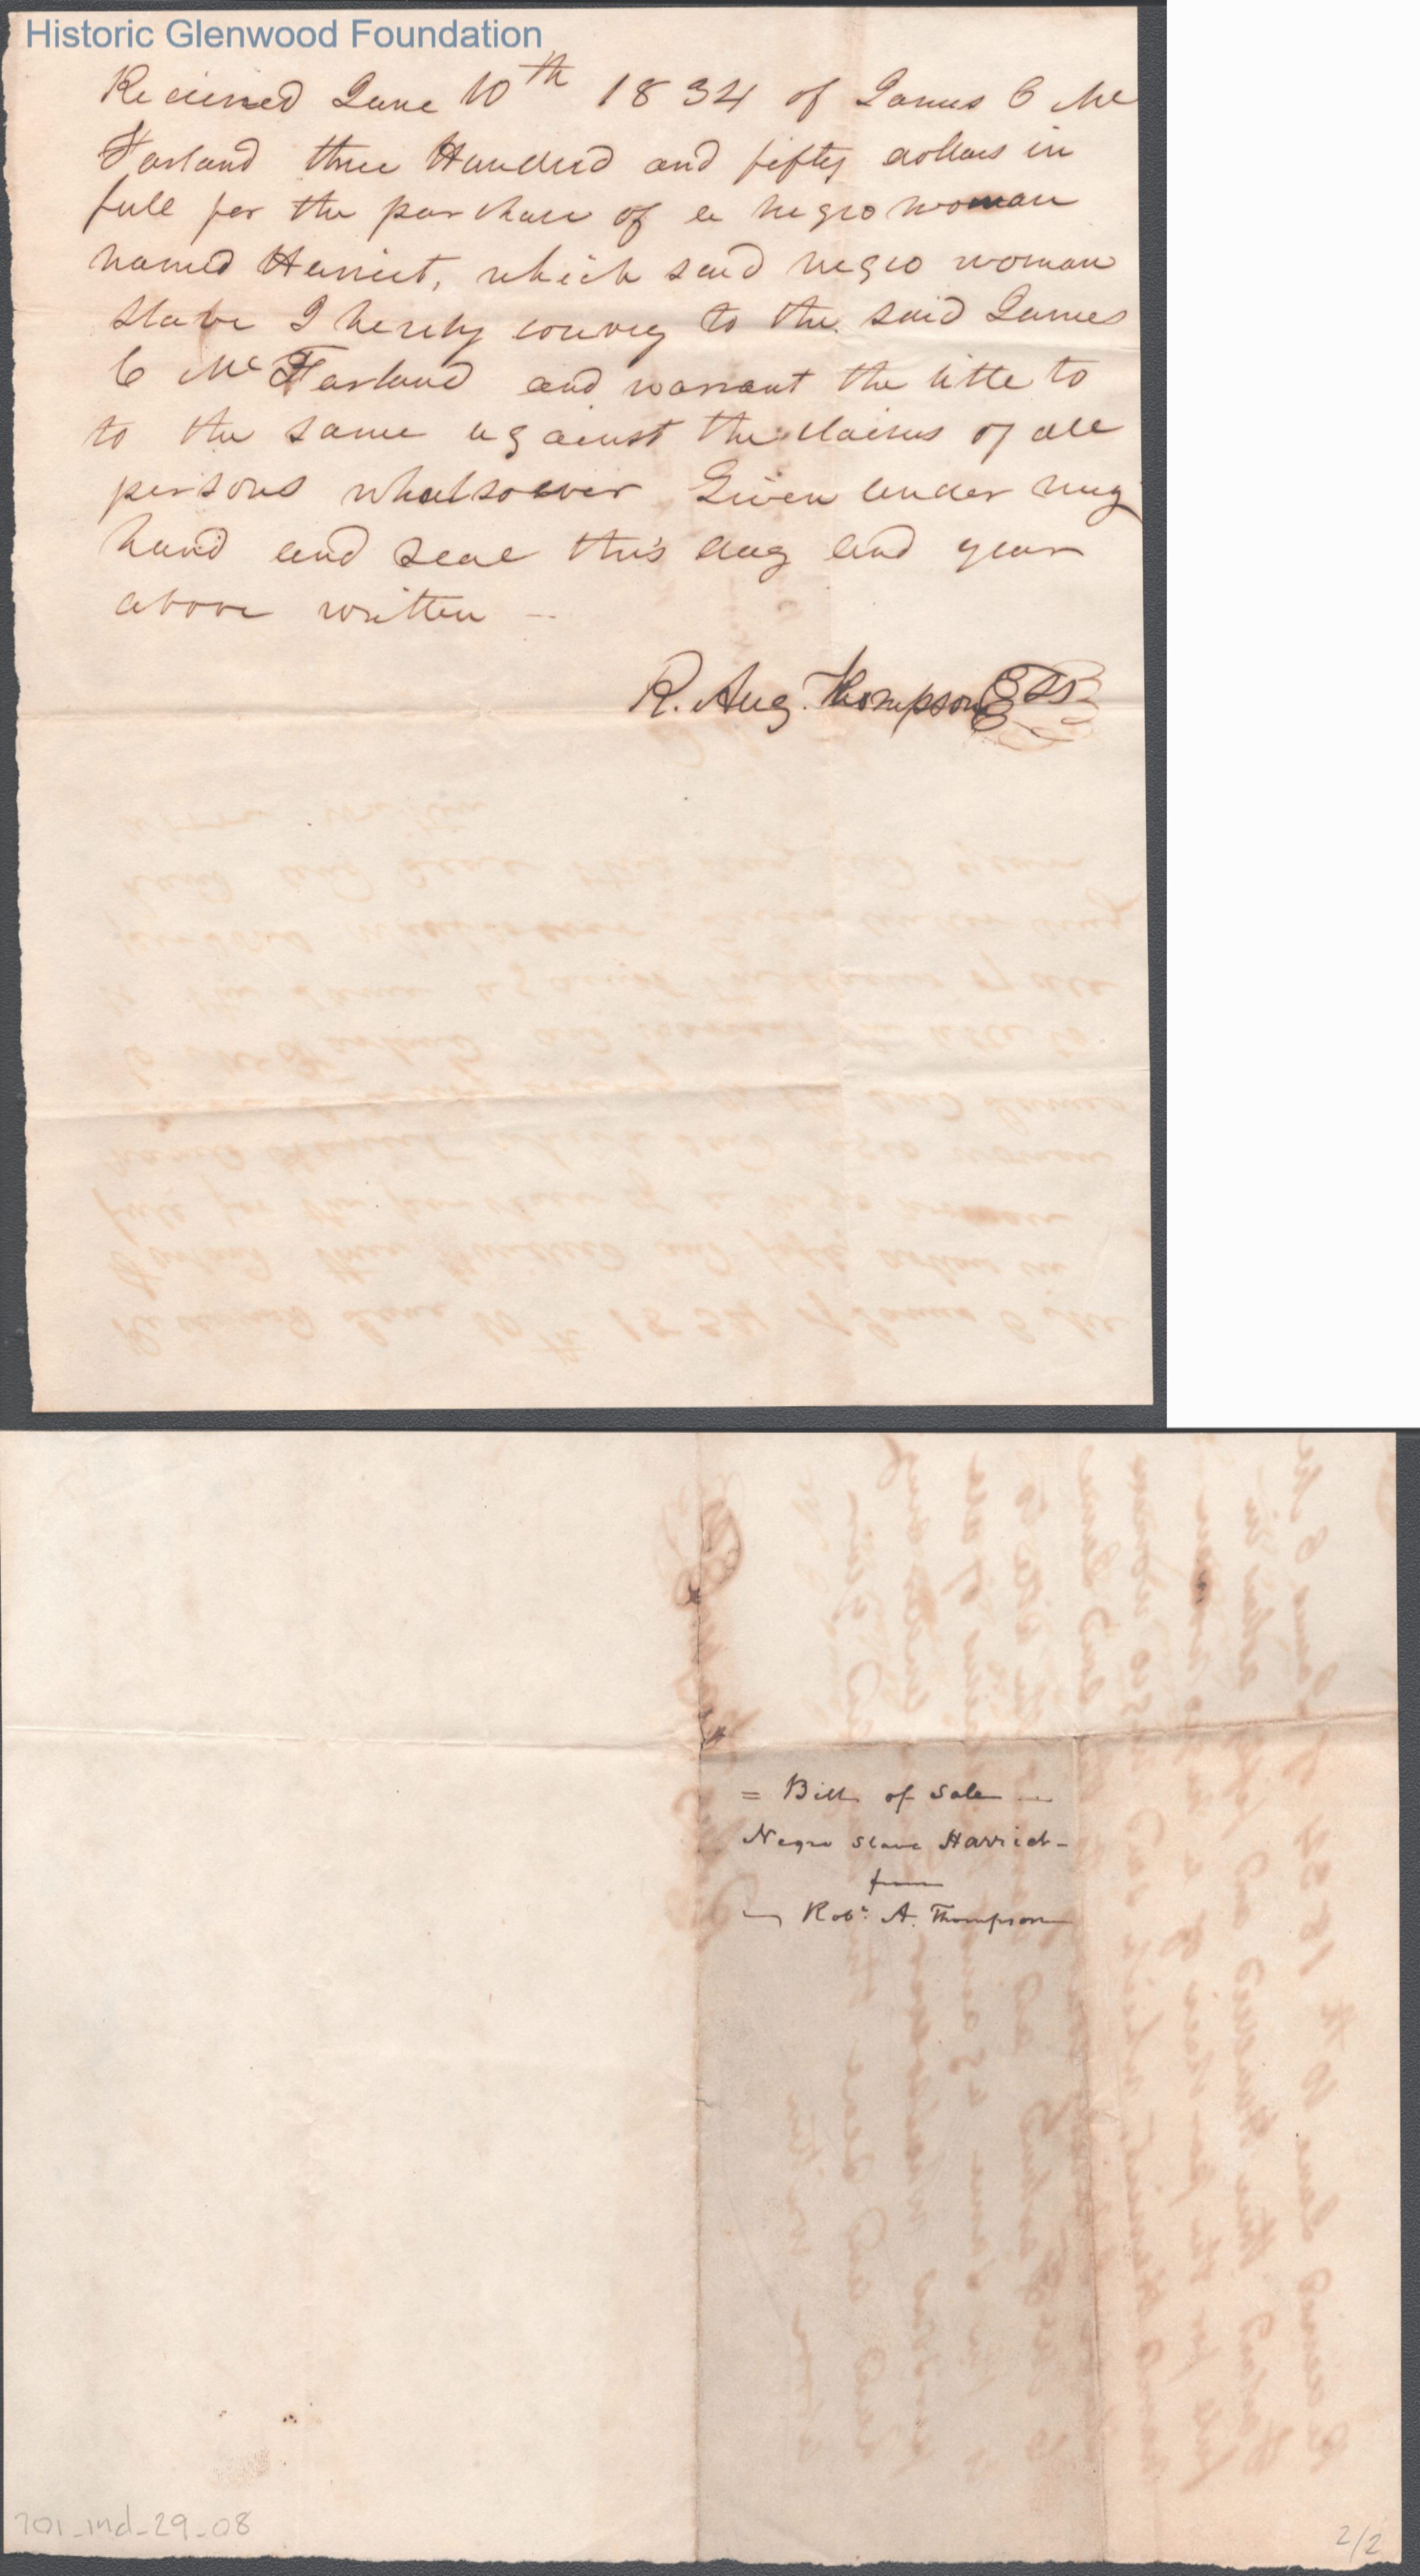 Historic Glenwood Foundation
Received June 10th 1834 of James C Mc
Farland three Hundred and fifty dollars in
full for the purchase of a negro woman
named Harriet, which said negro woman
slave I hereby convey to the said James
C Mc Farland and warrant the title to
to the same against the claims of all
persons whatsoever Given under my
hand and seal this day and year
above written —
R. Aug. Thompson
= Bill of Sale —
Negro Slave Harriet -
from
— Robt. A. Thompson
701_ind_29_08
2/2